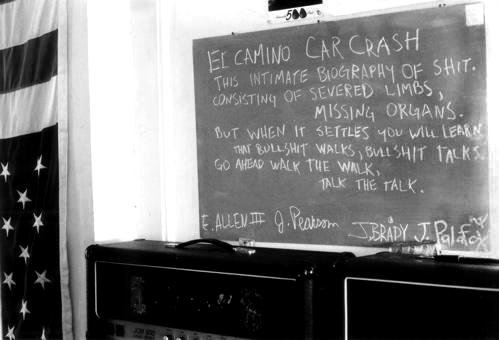 500
EL CAMINO CAR CRASH
THIS INTIMATE BIOGRAPHY OF SHIT.
CONSISTING OF SEVERED LIMBS,
MISSING ORGANS.
BUT WHEN IT SETTLES YOU WILL LEARN
THAT BULLSHIT WALKS, BULLSHIT TALKS.
GO AHEAD WALK THE WALK,
TALK THE TALK.
E. ALLEN III J. Pearson J. BRADY J. Palafox